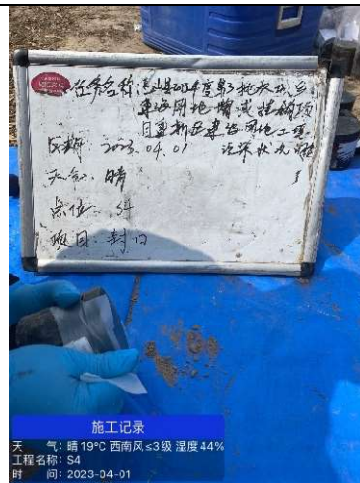 任务名称:凌山县2024年度第3批次城乡
建设用地增减挂钩项
目建新区建设用地工程
日期:2023.04.01
天气:晴
点位:S4
项目:封口
施工记录
天 气:晴 19°C 西南风≤3级 湿度44%
工程名称:S4
时 间:2023-04-01